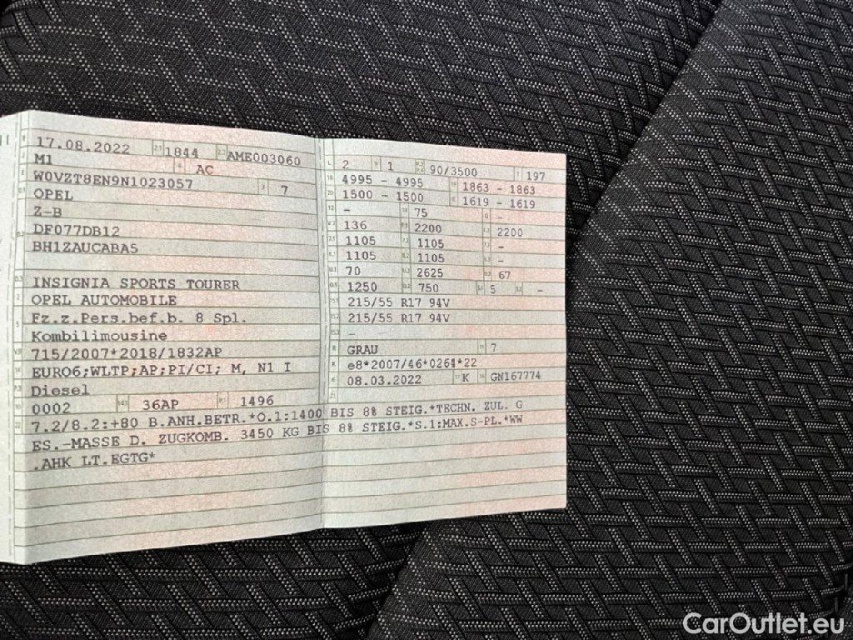 17.08.2022 1844 AME003060
M1 AC
W0VZT8EN9N1023057 7
OPEL
Z-B
DF077DB12
BH1ZAUCABA5
INSIGNIA SPORTS TOURER
OPEL AUTOMOBILE
Fz.z.Pers.bef.b. 8 Spl.
Kombilimousine
715/2007*2018/1832AP
EURO6;WLTP;AP;PI/CI; M, N1 I
Diesel
0002 36AP 1496
2 1 90/3500 197
4995 - 4995 1863 - 1863
1500 - 1500 1619 - 1619
- 75 -
136 2200 2200
1105 1105 -
1105 1105 -
70 2625 67
1250 750 5 -
215/55 R17 94V
215/55 R17 94V
-
GRAU 7
e8*2007/46*0264*22
08.03.2022 K GN167774
7.2/8.2:+80 B.ANH.BETR.*O.1:1400 BIS 8% STEIG.*TECHN. ZUL. G
ES.-MASSE D. ZUGKOMB. 3450 KG BIS 8% STEIG.*S.1:MAX.S-PL.*WW
.AHK LT.EGTG*
CarOutlet.eu